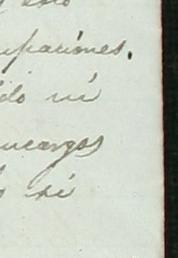 esto
upaciones.
ido ni
ncargos
si